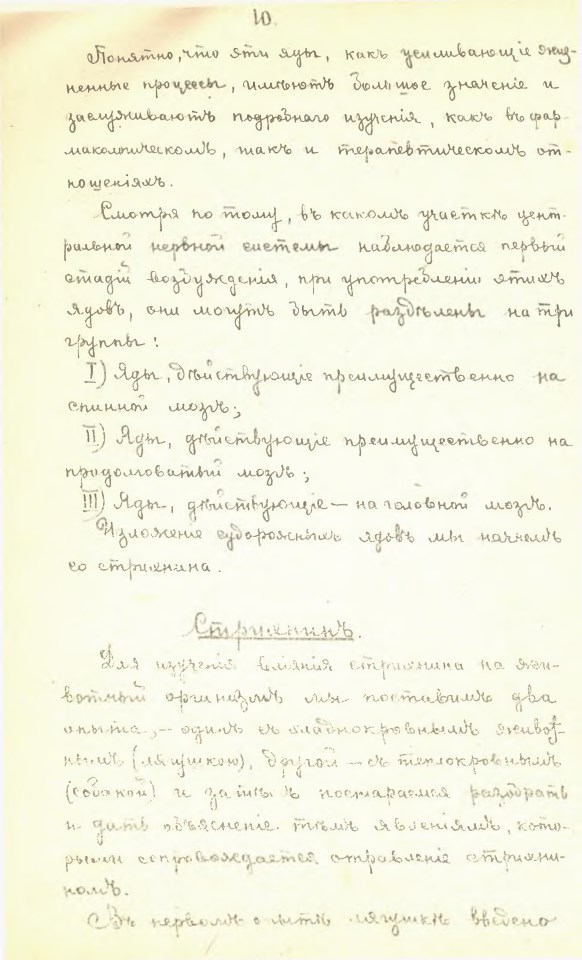 10.
Понятно, что эти яды, какъ усиливающіе жиз-
ненные процессы, имѣютъ большое значеніе и
заслуживаютъ подробнаго изученія, какъ въ фар-
макологическомъ, такъ и терапевтическомъ от-
ношеніяхъ.
Смотря по тому, въ какомъ участкѣ цент-
ральной нервной системы наблюдается первый
стадій возбужденія, при употребленіи этихъ
ядовъ, они могутъ быть раздѣлены на три
группы:
I) Яды, дѣйствующіе преимущественно на
спинной мозгъ;
II) Яды, дѣйствующіе преимущественно на
продолговатый мозгъ;
III) Яды, дѣйствующіе — на головной мозгъ.
Изложеніе судорожныхъ ядовъ мы начнемъ
со стрихнина.
Стрихнинъ.
Для изученія вліянія стрихнина на жи-
вотный организмъ мы поставимъ два
опыта, — одинъ съ хладнокровнымъ живот-
нымъ (лягушкою), другой — съ теплокровнымъ
(собакой) и затѣмъ постараемся разобрать
и дать объясненіе тѣмъ явленіямъ, кото-
рыми сопровождается отравленіе стрихни-
номъ.
Въ первомъ опытѣ лягушкѣ введено